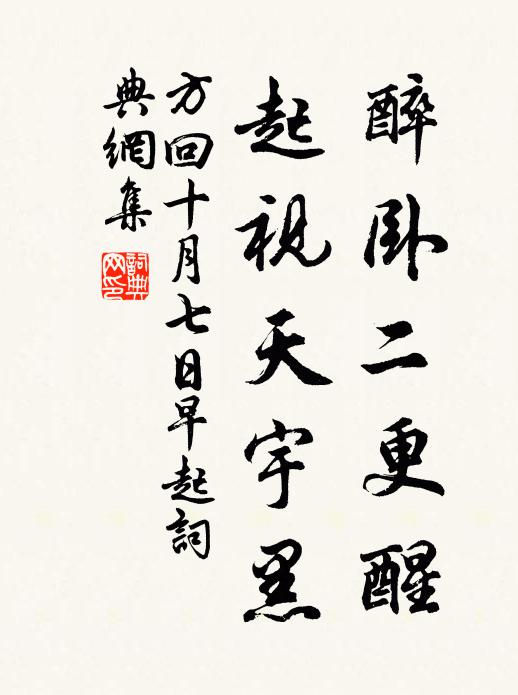 醉卧二更醒
起視天宇黑
方回十月七日早起詞
典網集
詞典
网印